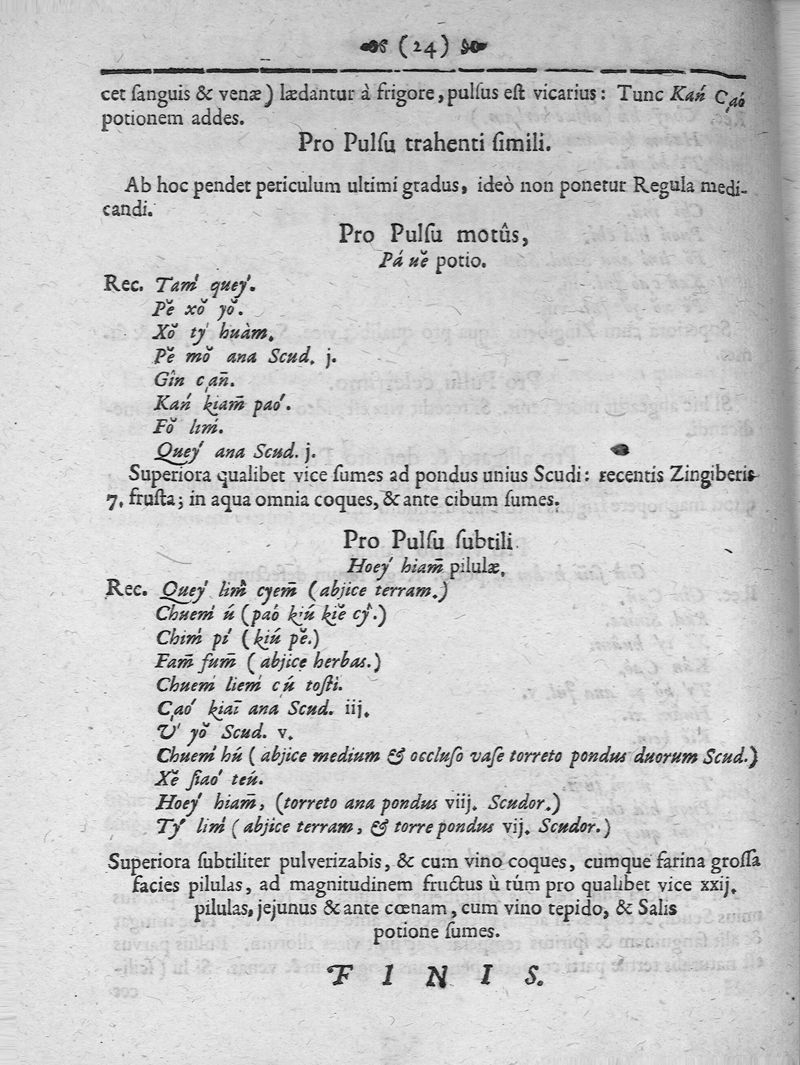 (24)
cet ſanguis & venæ) lædantur à frigore, pulſus eſt vicarius: Tunc Kań Çaó
potionem addes.
Pro Pulſu trahenti ſimili.
Ab hoc pendet periculum ultimi gradus, ideò non ponetur Regula medi-
candi.
Pro Pulſu motûs,
Pá uě potio.
Rec. Tam̍ quey̍.
Pě xǒ yǒ.
Xǒ ty̍ huàm.
Pě mǒ ana Scud. j.
Gîn çan̄.
Kań kiam̄ paó.
Fǒ lim̍.
Quey̍ ana Scud. j.
Superiora qualibet vice ſumes ad pondus unius Scudi: recentis Zingiberis
7. fruſta; in aqua omnia coques, & ante cibum ſumes.
Pro Pulſu ſubtili
Hoey̍ hiam̄ pilulæ.
Rec. Quey̍ lim̂ cyem̄ (abjice terram.)
Chuem̍ ú (paó kiú kiě cŷ.)
Chim̍ pí (kiú pě.)
Fam̄ fum̄ (abjice herbas.)
Chuem̍ liem̍ cú toſti.
Çaó kiaī ana Scud. iij.
V̍ yǒ Scud. v.
Chuem̍ hú (abjice medium & occluſo vaſe torreto pondus duorum Scud.)
Xě ſiao teú.
Hoey̍ hiam̄, (torreto ana pondus viij. Scudor.)
Ty̍ lim̍ (abjice terram, & torre pondus vij. Scudor.)
Superiora ſubtiliter pulverizabis, & cum vino coques, cumque farina groſſa
facies pilulas, ad magnitudinem fructus ù túm pro qualibet vice xxij.
pilulas, jejunus & ante cœnam, cum vino tepido, & Salis
potione ſumes.
F I N I S.